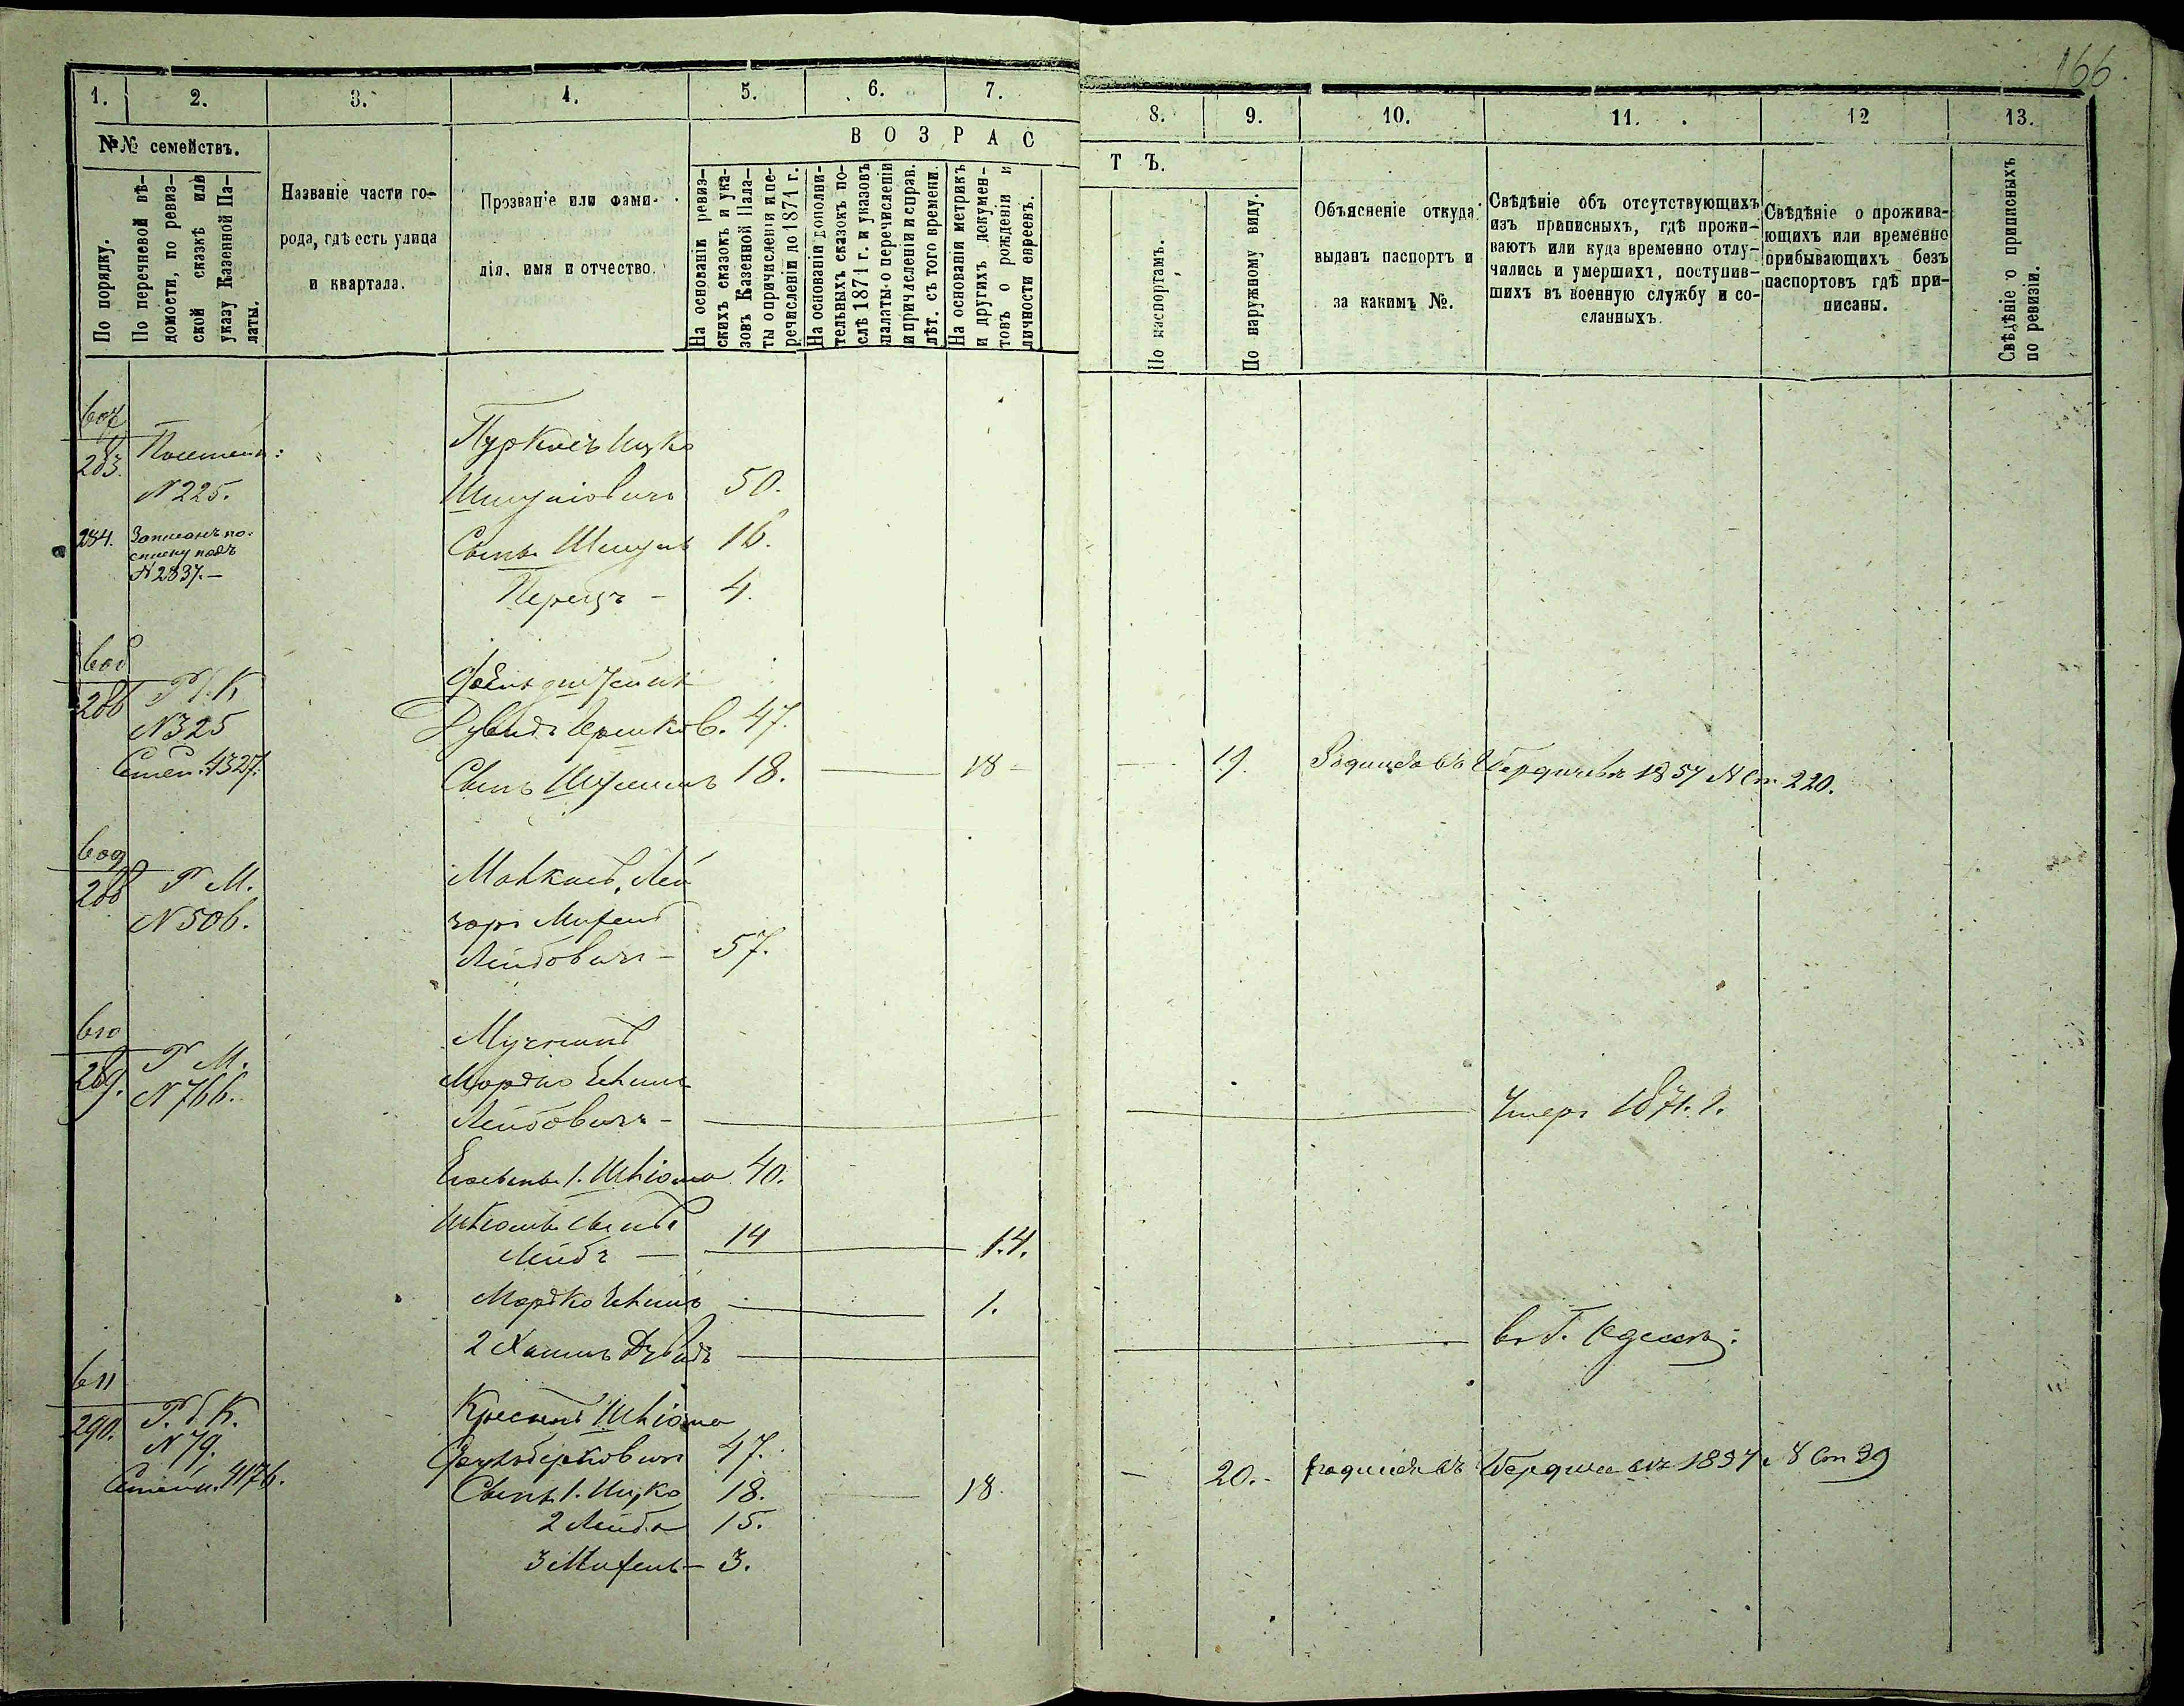 166.
1.
2.
3.
4.
5.
6.
7.
8.
9.
10.
11.
12
13.
№№ семействъ.
По порядку.
По перечневой вѣ-
домости, по ревиз-
ской сказкѣ или
указу Казенной Па-
латы.
Названіе части го-
рода, гдѣ есть улица
и квартала.
Прозваніе или фами-
лія, имя и отчество.
ВОЗРАС
ТЪ.
На основаніи ревиз-
скихъ сказокъ и ука-
зовъ Казенной Пала-
ты о причисленіи и пе-
речисленіи до 1871 г.
На основаніи дополни-
тельныхъ сказокъ по-
слѣ 1871 г. и указовъ
палаты о перечисленіи
и причисленіи и справ.
лѣт. съ того времени.
На основаніи метрикъ
и другихъ докумен-
товъ о рожденіи и
личности евреевъ.
По паспортамъ.
По наружному виду.
Объясненіе откуда
выданъ паспортъ и
за какимъ №.
Свѣдѣніе объ отсутствующихъ
изъ приписныхъ, гдѣ прожи-
ваютъ или куда временно отлу-
чились и умершихъ, поступив-
шихъ въ военную службу и со-
сланныхъ.
Свѣдѣніе о прожива-
ющихъ или временно
прибывающихъ безъ
паспортовъ гдѣ при-
писаны.
Свѣдѣніе о приписныхъ
по ревизіи.
607
283.
N 225.
Пуркисъ Ицко
Шмулiовичъ 50.
284. Записанъ по
списку подъ
N 2837.-
Сынъ Шмуль 16.
Перецъ - 4.
608
286 Р.б.К
N 325
Семей. 4327.
Дувидъ Гершков. 47.
Сынъ 18. 18 - 19. Родился въ Бердичевѣ 1857 N Ст. 220.
609
288 Р М.
N 506.
Лей
зоръ Михель
Лейбовичъ - 57.
610
289. Р М.
N 766.
Мучникъ
Мордко Хаимъ
Лейбовичъ - Умеръ 1871. г.
Его сынъ 1. Шліома 40.
Шліомы сынъ
Лейбъ - 14 14.
Мордко Хаимъ 1.
2 Хаимъ Дувидъ въ Г. Одессѣ.
611
290. Р.б.К.
N 79.
Семей. 4176.
Шліома
47.
Сынъ 1. Ицко 18. 18. - 20. - родился въ Бердичевѣ 1857 N Ст 39
2 Лейба 15.
3 Михель - 3.